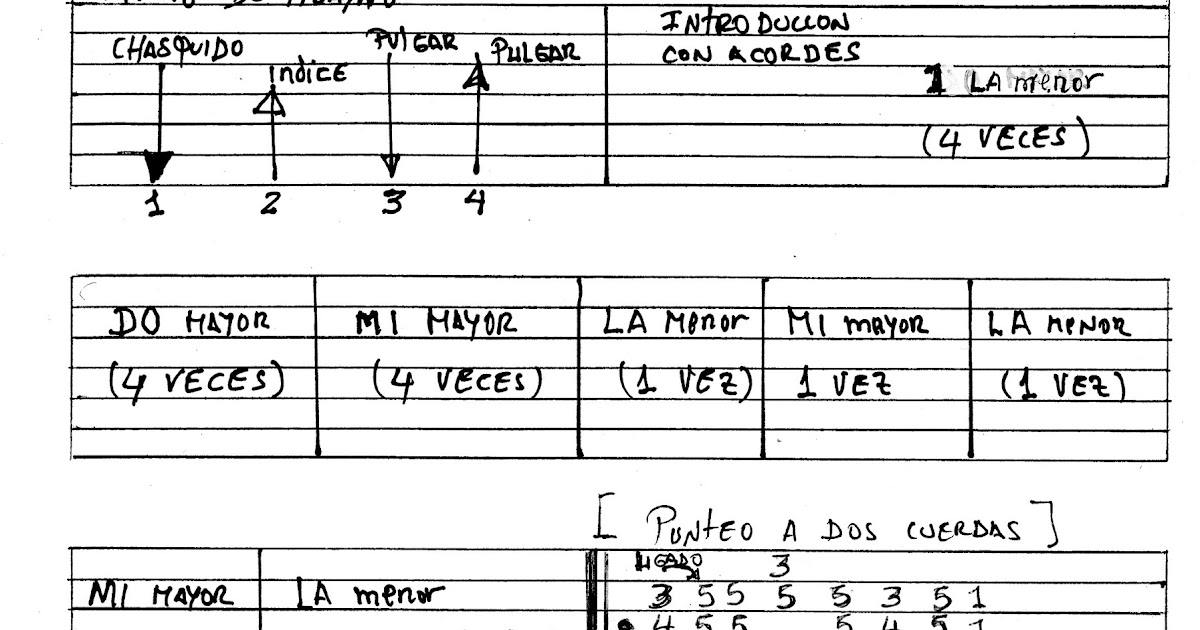 CHASQUIDO INDICE PULGAR PULGAR
1 2 3 4
INTRODUCCION
CON ACORDES
1 LA menor
(4 VECES)
DO MAYOR MI MAYOR LA MENOR MI MAYOR LA MENOR
(4 VECES) (4 VECES) (1 VEZ) 1 VEZ (1 VEZ)
[ PUNTEO A DOS CUERDAS ]
MI MAYOR LA menor
LIGADO 3
3 5 5 5 5 3 5 1
4 5 5 5 4 5 1